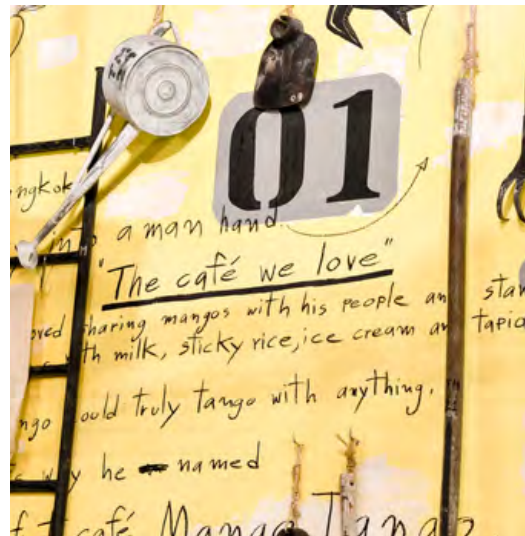 01
a man hand.
"The café we love"
sharing mangos with his people an
with milk, sticky rice, ice cream an
ould truly tango with anything.
he named
café Mango Tango